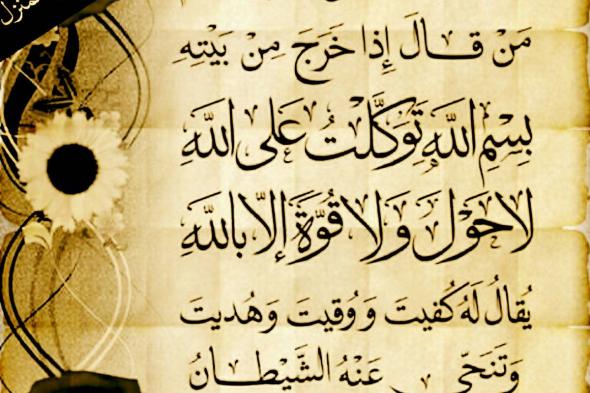 منزل
مَنْ قَالَ إِذَا خَرَجَ مِنْ بَيْتِهِ
بِسْمِ اللَّهِ تَوَكَّلْتُ عَلَى اللَّهِ
لَا حَوْلَ وَلَا قُوَّةَ إِلَّا بِاللَّهِ
يُقَالُ لَهُ كُفِيتَ وَوُقِيتَ وَهُدِيتَ
وَتَنَحَّى عَنْهُ الشَّيْطَانُ